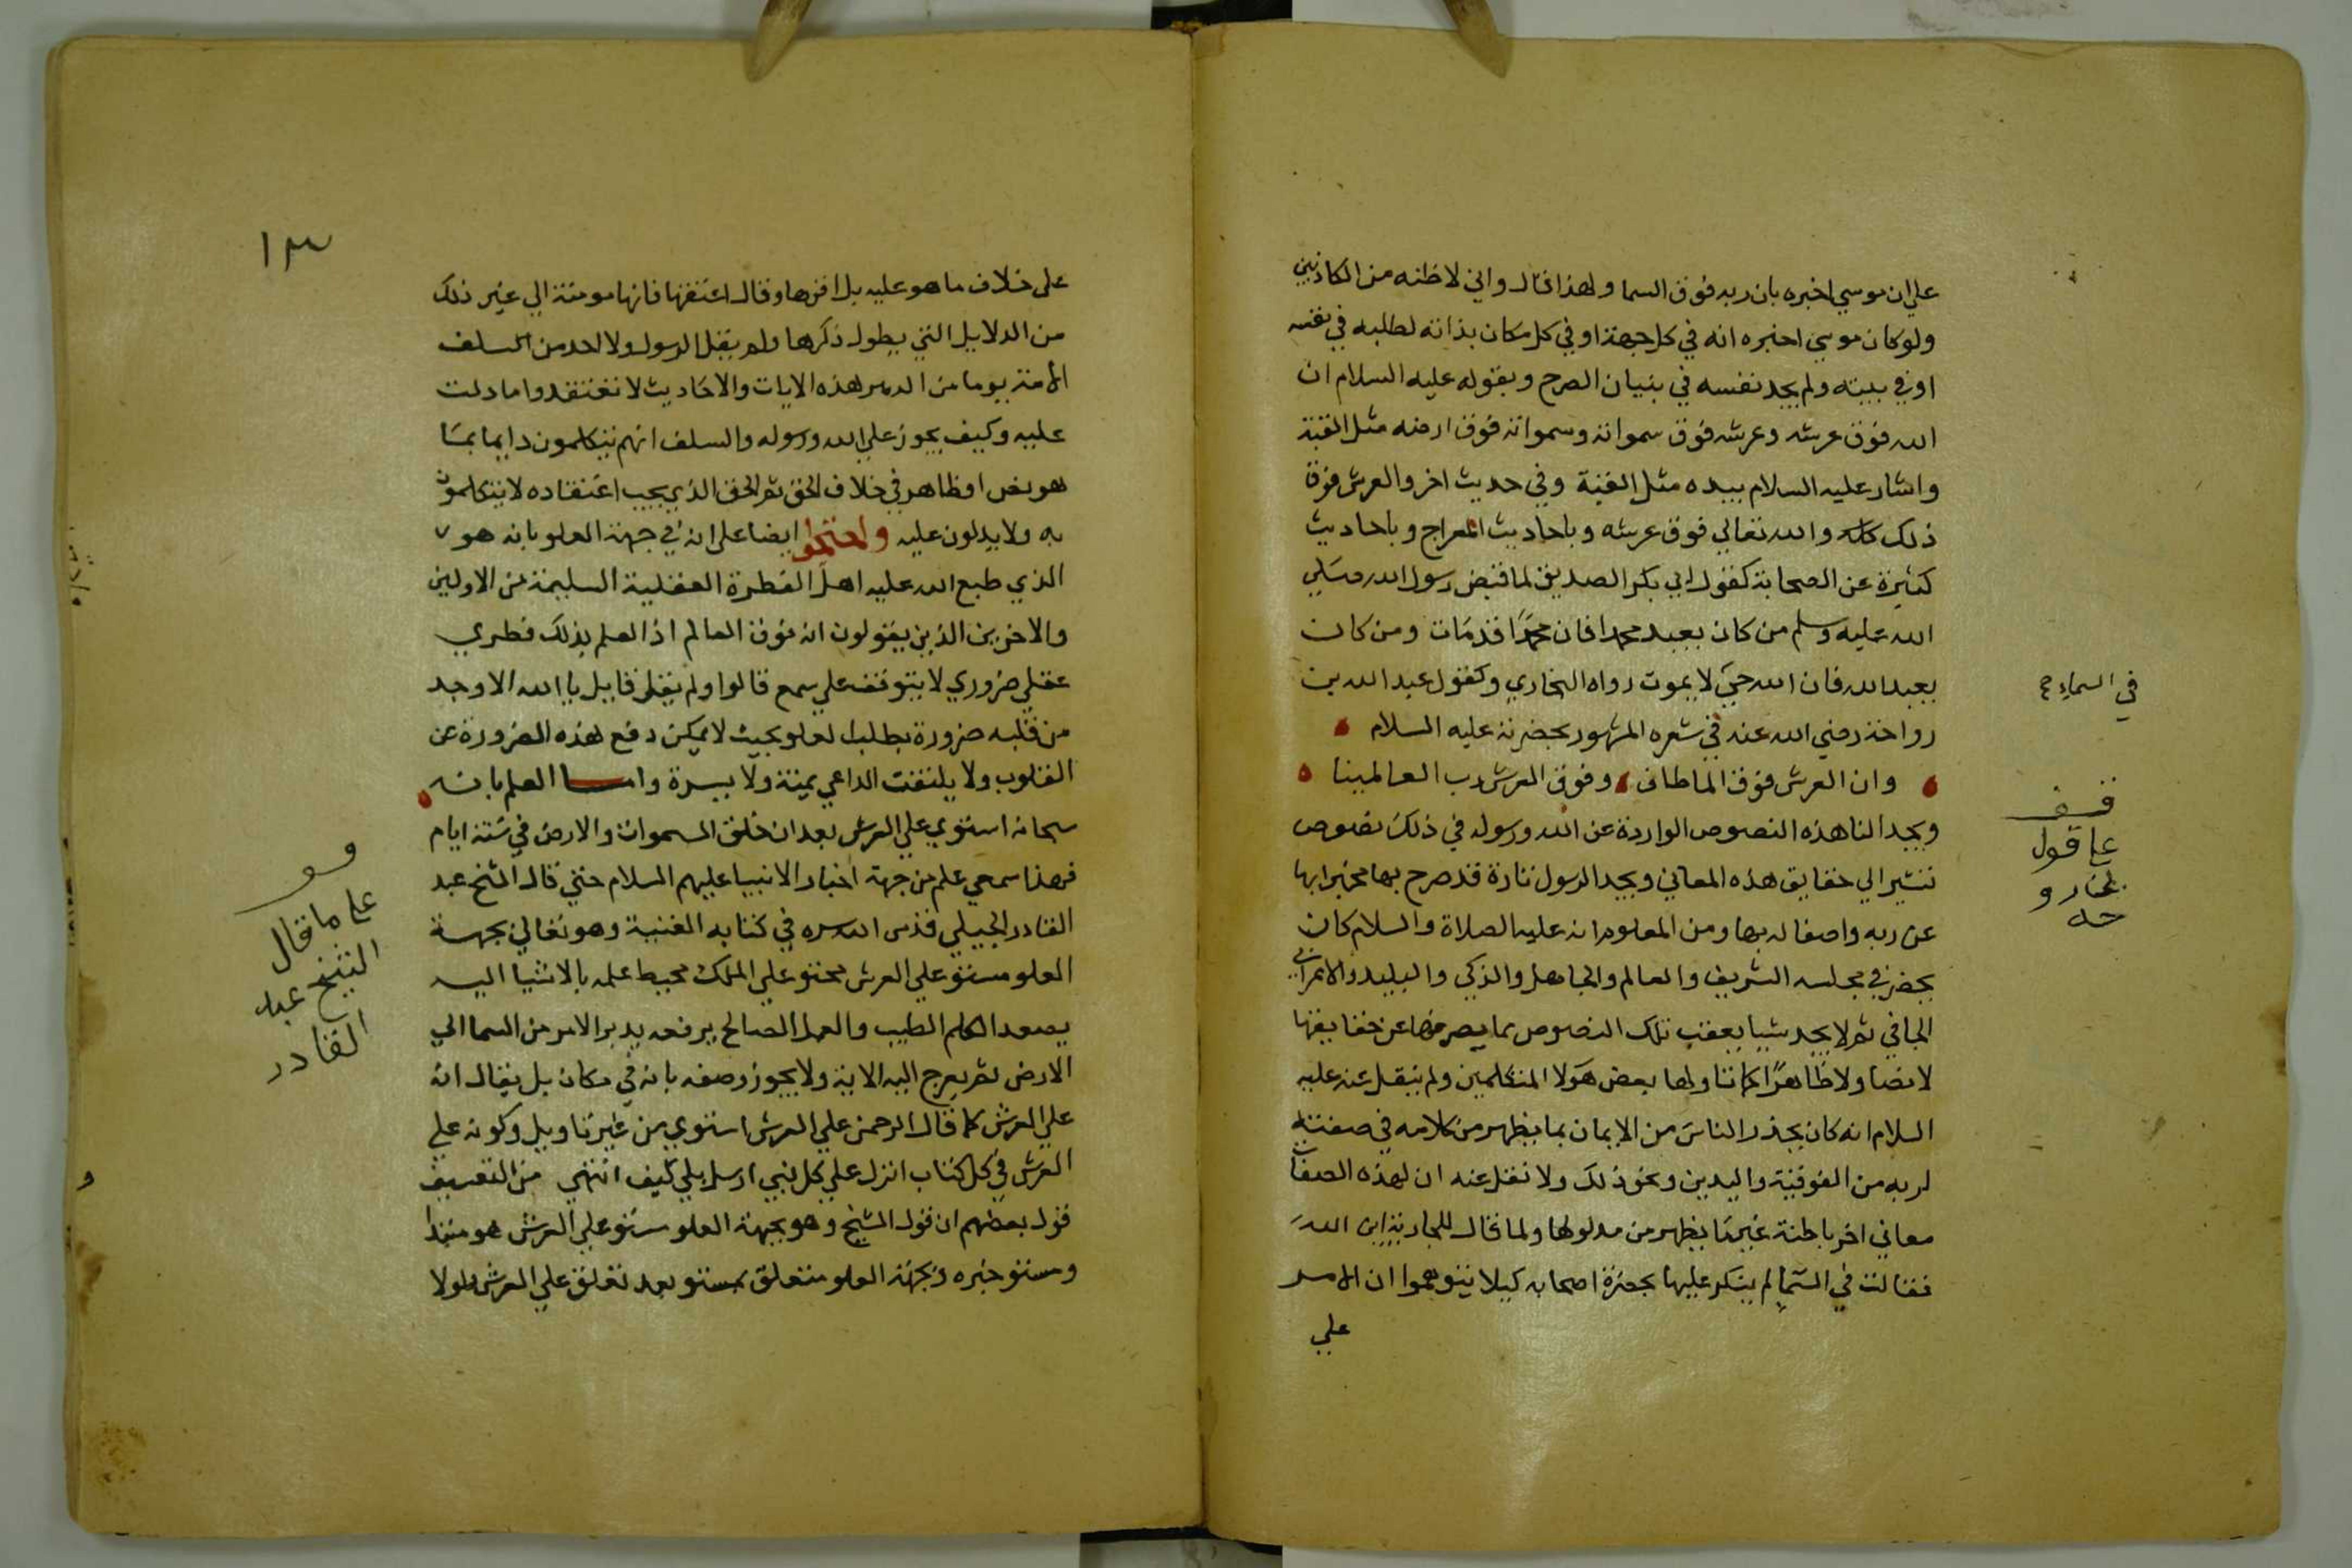 علي ان موسي اخبره بان ربه فوق السما ولهذا قال واني لاظنه من الكاذبين
ولو كان موسي اخبره انه في كل جهة او في كل مكان بذاته لطلبه في نفسه
او في بيته ولم يجد نفسه في بنيان الصرح وبقوله عليه السلام ان
الله فوق عرشه وعرشه فوق سمواته وسمواته فوق ارضه مثل القبة
واشار عليه السلام بيده مثل القبة وفي حديث اخر والعرش فوق
ذلك كله والله تعالي فوق عرشه وباحاديث المعراج وباحاديث
كثيرة عن الصحابة كقول ابي بكر الصديق لما قبض رسول الله صلي
الله عليه وسلم من كان يعبد محمدا فان محمدًا قد مات ومن كان
يعبد الله فان الله حي لا يموت رواه البخاري وكقول عبد الله بن
في السماء صح
رواحة رضي الله عنه في شعره المشهور بحضرته عليه السلام
وان العرش فوق الما طاف وفوق العرش رب العالمينا
قف
علي قول
ويجد الناهذه النصوص الواردة عن الله ورسوله في ذلك نصوص
تشير الي حقايق هذه المعاني ويجد الرسول تارة قد صرح بها مخبرا بها
عن ربه واصفا له بها ومن المعلوم انه عليه الصلاة والسلام كان
يحضر في مجلسه الشريف والعالم والجاهل والذكي والبليد والاعرابي
الجافي ثم لا يجد شيا يعقب تلك النصوص مما يصرفها عن حقايقها
لا نصا ولا ظاهرًا كما تاولها بعض هولا المتكلمين ولم ينقل عنه عليه
السلام انه كان يحذر الناس من الايمان بما يظهر من كلامه في صفته
لربه من الفوقية واليدين ونحو ذلك ولا نقل عنه ان لهذه الصفات
معاني اخر باطنة غير ما يظهر من مدلولها ولما قال للجارية اين الله
فقالت في السما لم ينكر عليها بحضرة اصحابه كيلا يتوهموا ان الامر
علي
١٣
علي خلاف ما هو عليه بل اقرها وقال اعتقها فانها مومنة الي غير ذلك
من الدلايل التي يطول ذكرها ولم يقل الرسول ولا احد من السلف
الامة يوما من الدهر لهذه الايات والاحاديث لا تعتقدوا ما دلت
عليه وكيف يجوز علي الله ورسوله والسلف انهم يتكلمون دايما بما
هو نص او ظاهر في خلاف الحق ثم الحق الذي يجب اعتقاده لا يتكلمون
به ولا يدلون عليه واحتجوا ايضا علي انه في جهة العلو بانه هو
الذي طبع الله عليه اهل الفطرة العقلية السليمة من الاولين
والاخرين الذين يقولون انه فوق العالم اذ العلم بذلك فطري
عقلي ضروري لا يتوقف علي سمع قالوا ولم يقل قايل يا الله الا وجد
من قلبه ضرورة بطلب العلو بحيث لا يمكن دفع هذه الضرورة عن
القلوب ولا يلتفت الداعي يمنة ولا يسرة واما العلم بانه
سبحانه استوي علي العرش بعد ان خلق السموات والارض في ستة ايام
فهذا سمعي علم من جهة اخبار الانبيا عليهم السلام حتي قال الشيخ عبد
القادر الجيلي قدس الله سره في كتابه الغنية وهو تعالي بجهة
العلو مستو علي العرش محتو علي الملك محيط علمه بالاشيا اليه
يصعد الكلم الطيب والعمل الصالح يرفعه يدبر الامر من السما الي
الارض ثم يعرج اليه الاية ولا يجوز وصفه بانه في مكان بل يقال انه
علي العرش كما قال الرحمن علي العرش استوي من غير تاويل وكونه علي
العرش في كل كتاب انزل علي كل نبي ارسل بلي كيف انتهي من التعسيف
قول بعضهم ان قول الشيخ وهو بجهة العلو مستو علي العرش هو مبتدا
ومستو خبره وبجهة العلو متعلق بمستو بعد تعلق علي العرش ولولا
علي ما قال
الشيخ عبد
القادر